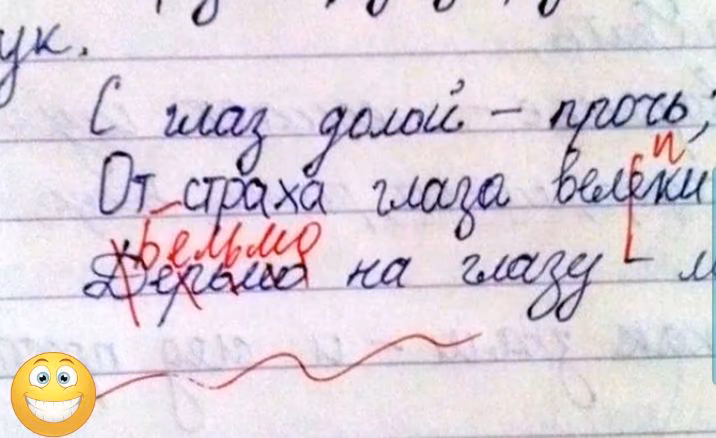 ук.
С глаз долой – прочь;
От страха глаза велеки
и
Бельмо
Дерьмо на глазу – м